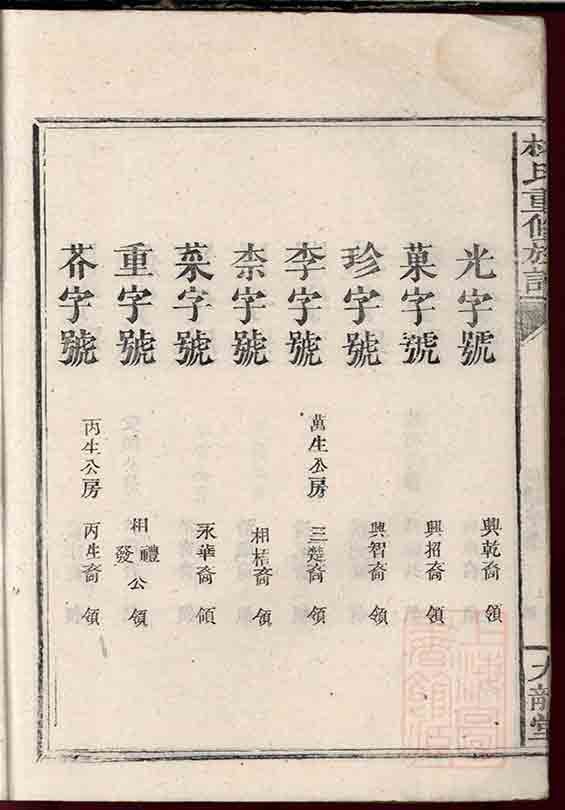 林氏重修族譜
九龍堂
光字號 興乾裔 領
菓字號 興招裔 領
珍字號 興智裔 領
李字號 萬生公房 三楚裔 領
柰字號 相裔 領
菜字號 永華裔 領
重字號 相禮發公 領
芥字號 丙生公房 丙生裔 領
上海圖書館藏